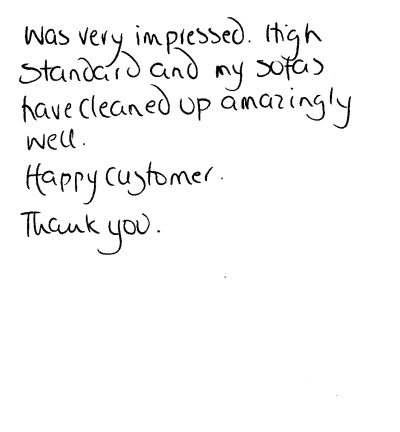 Was very impressed. High
Standard and my sofas
have cleaned up amazingly
well.
Happy Customer.
Thank you.